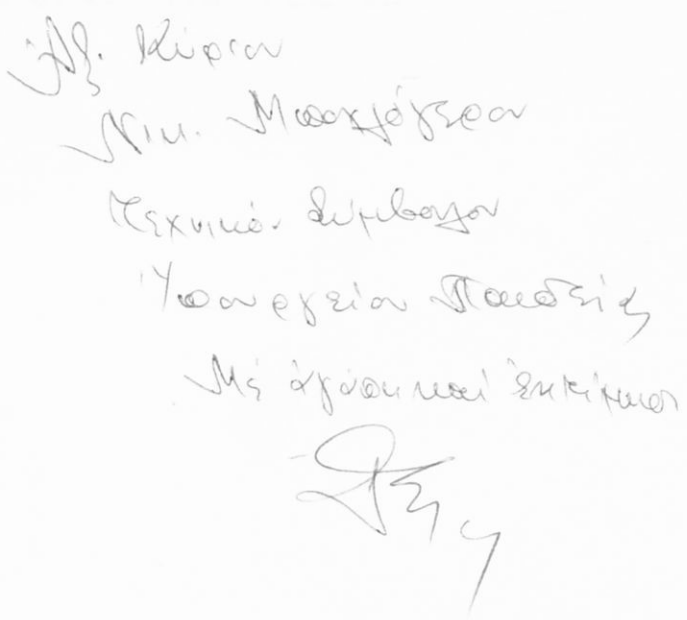 Ἀξ. Κύριον
Νικ. Μπαλόγερον
Τεχνικόν Σύμβουλον
Ὑπουργείου Παιδείας
Μέ ἀγάπη καί ἐκτίμηση